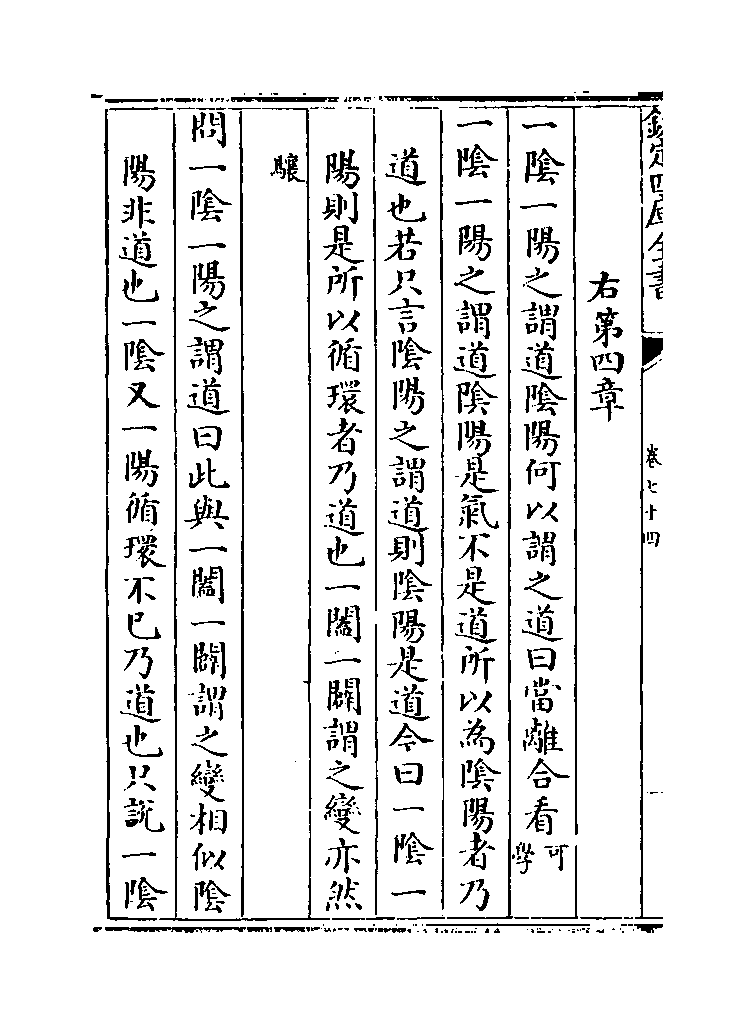 欽定四庫全書
卷七十四
右第四章
一陰一陽之謂道陰陽何以謂之道曰當離合看可學
一陰一陽之謂道陰陽是氣不是道所以為陰陽者乃
道也若只言陰陽之謂道則陰陽是道今曰一陰一
陽則是所以循環者乃道也一闔一闢謂之變亦然
驤
問一陰一陽之謂道曰此與一闔一闢謂之變相似陰
陽非道也一陰又一陽循環不已乃道也只說一陰